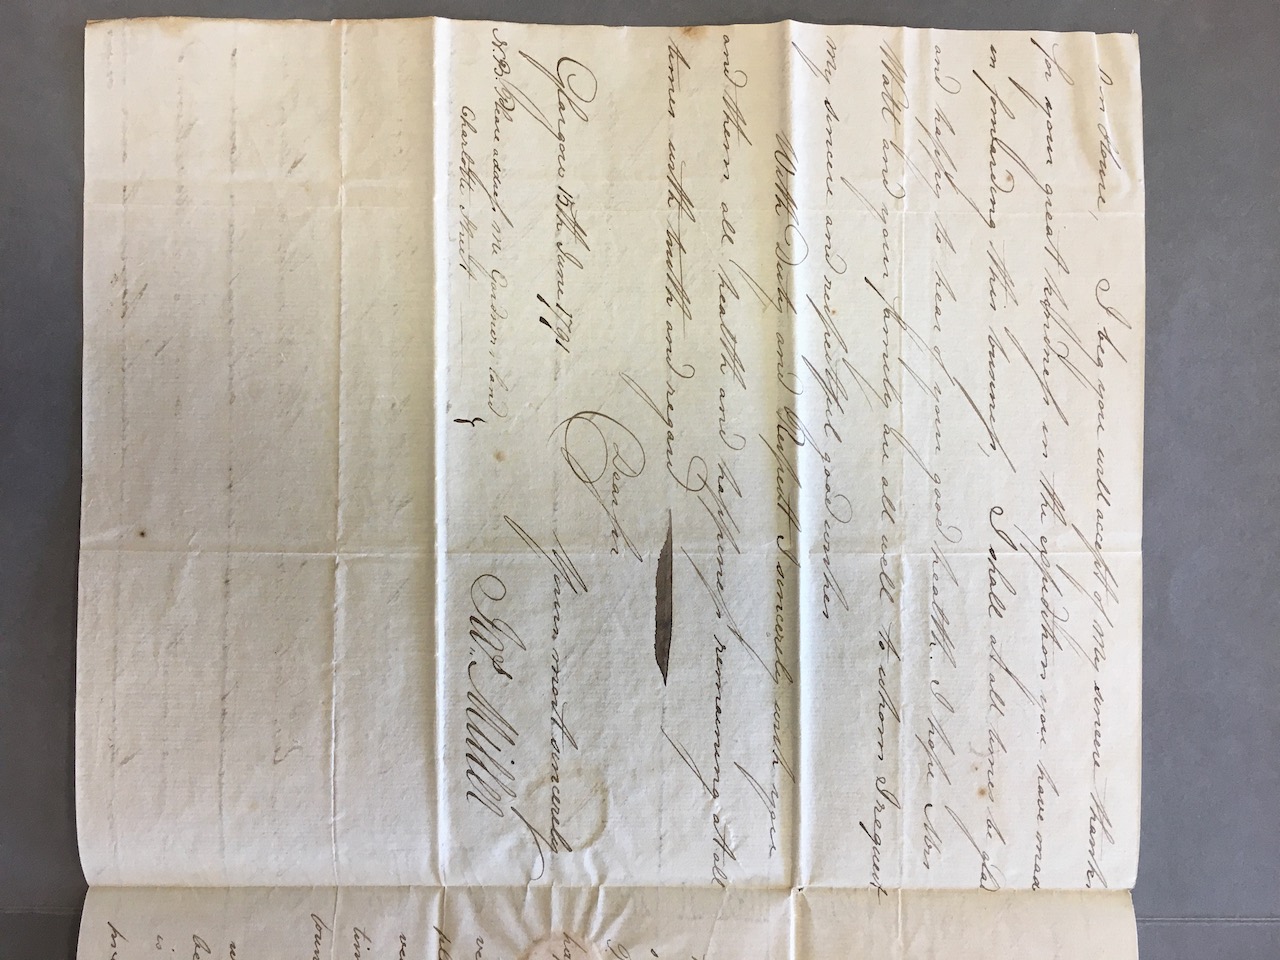 our house, I beg you will accept of my sincere thanks
for your great kyndness in the expedition you have mad
in forwarding this buisness, I shall at all times be glad
and happy to hear of your good health. I hope Mrs
Watt and your family are all well to whom I request
my sincere and respectful good wishes
With Duty and Respect I sincerely wish you
and them all health and happiness remaining at all
times with truth and regard
Dear Sir
Glasgow 15th June 1791 Yours most sincerely
Ws. Mill
N.B. Please address me Gardner's land
Charlotte Street